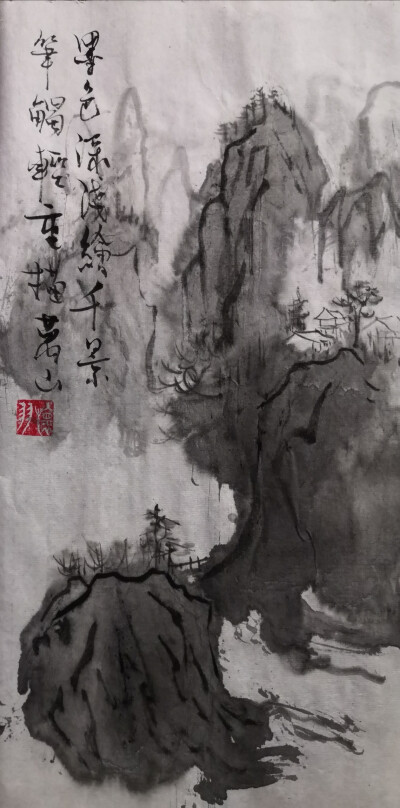 墨色深淺繪千景
筆觸輕重描蒼山